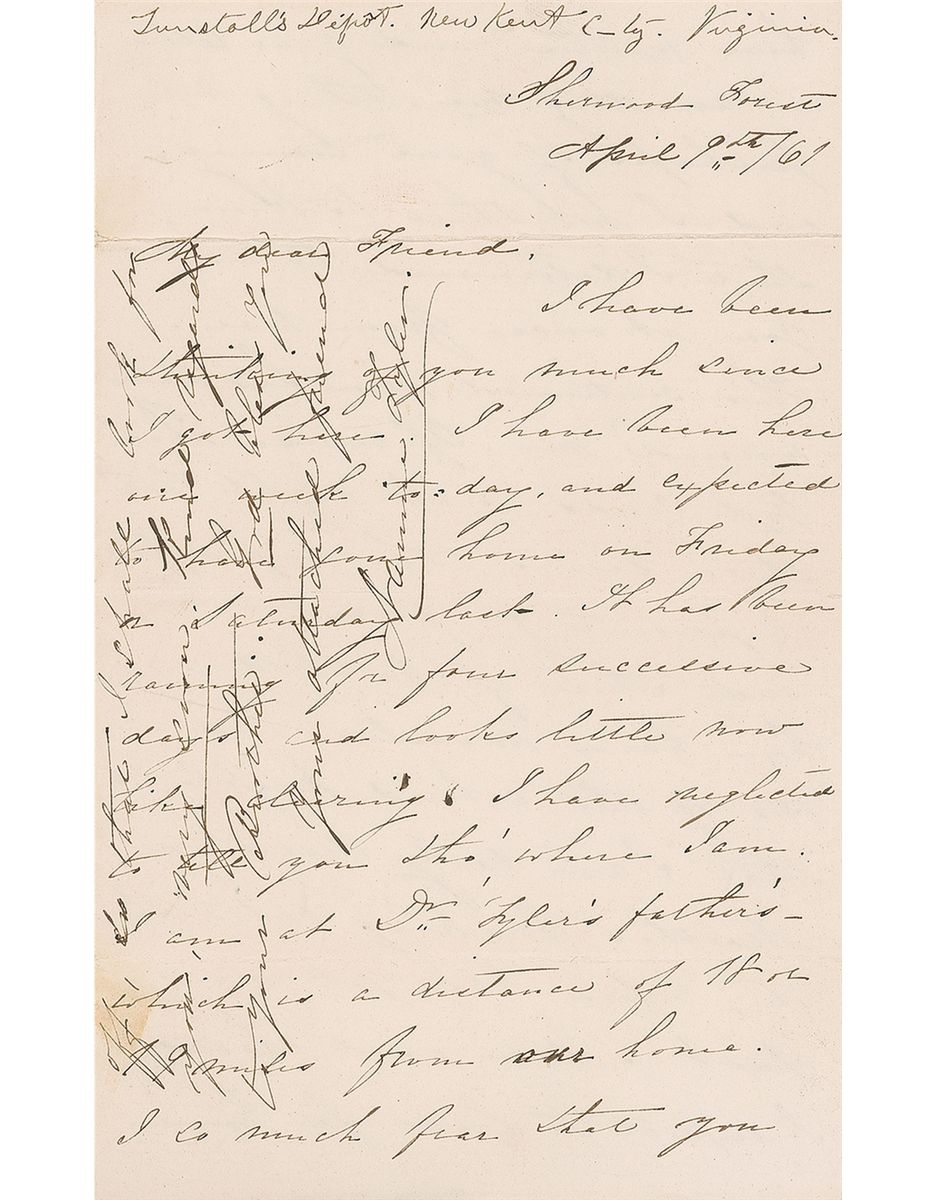 Tunstall's Depot. New Kent C-ty. Virginia.
Sherwood Forest
April 9th/61
My dear Friend,
I have been
thinking of you much since
I got here. I have been here
one week to-day, and expected
to have gone home on Friday
or Saturday last. It has been
raining for four successive
days and looks little now
like clearing. I have neglected
to tell you tho' where I am.
I am at Dr Tyler's father's-
which is a distance of 18 or
19 miles from our home.
I so much fear that you
that I shall look for
very soon. Kind regards
to your Brother.
Your attached friend
Nannie Tyler.